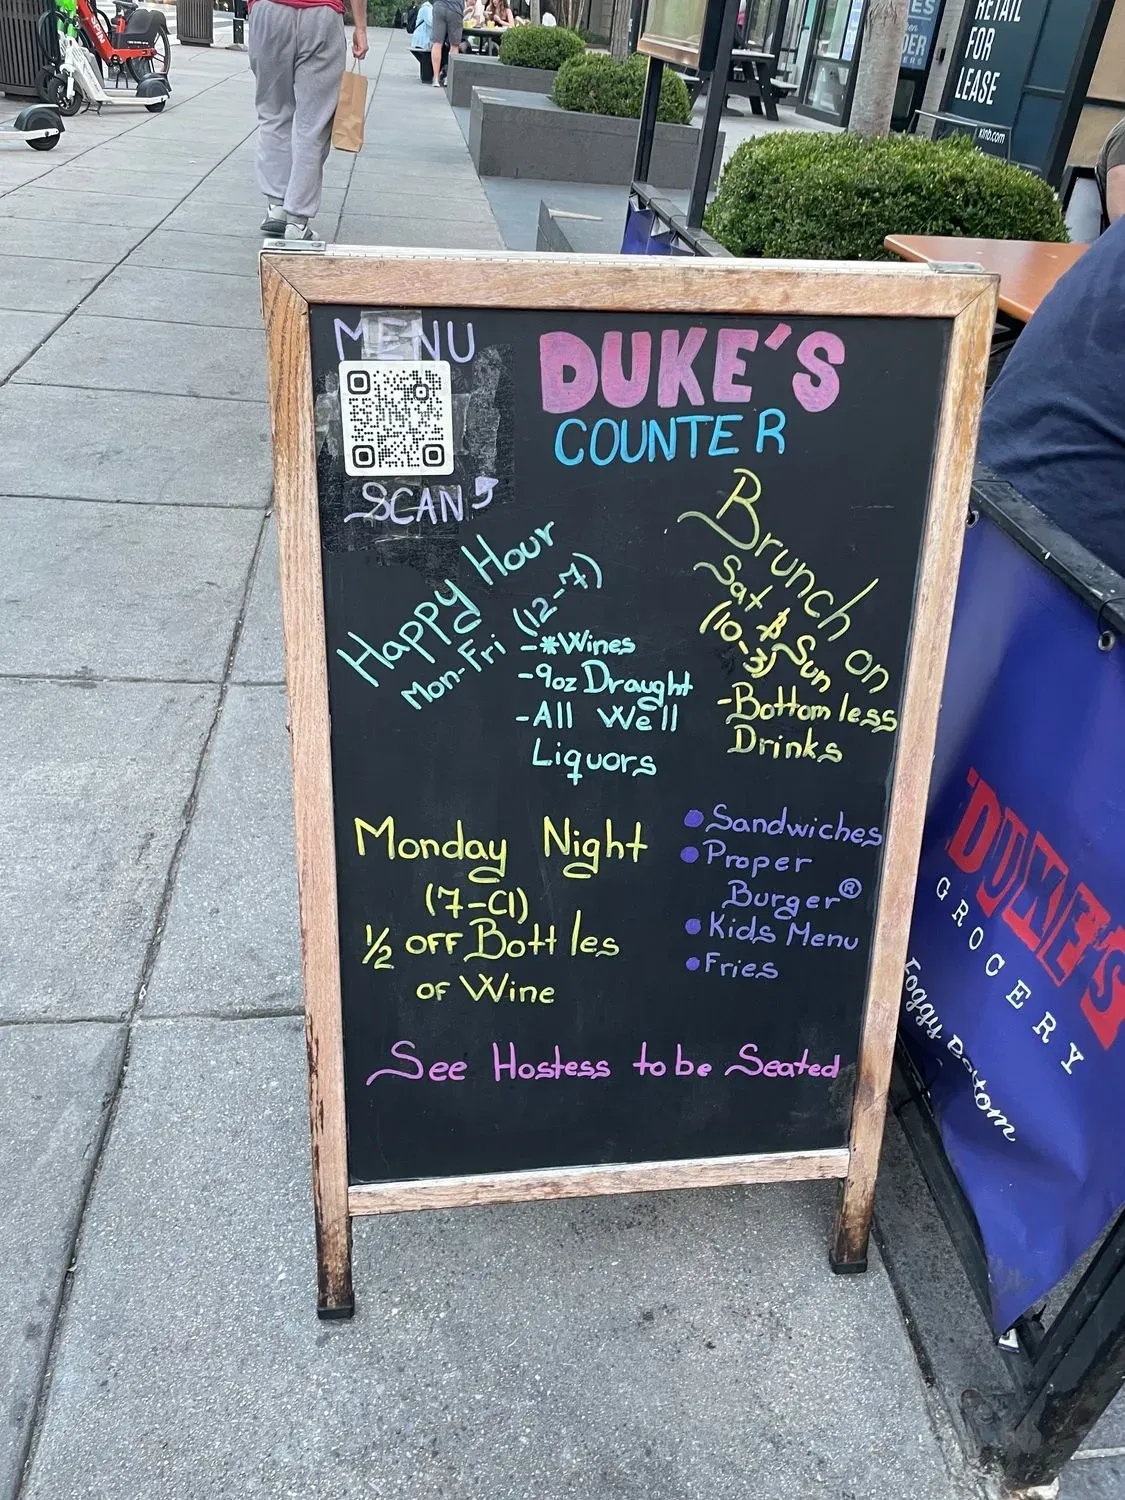 RETAIL
FOR
LEASE
klnb.com
MENU
SCAN
DUKE'S
COUNTER
Happy Hour
Mon-Fri (12-7)
-*Wines
-9oz Draught
-All Well
Liquors
Brunch on
Sat & Sun
(10-3)
-Bottomless
Drinks
Monday Night
(7-Cl)
1/2 OFF Bottles
OF Wine
• Sandwiches
• Proper
Burger®
• Kids Menu
• Fries
See Hostess to be Seated
DUKE'S
GROCERY
Foggy Bottom